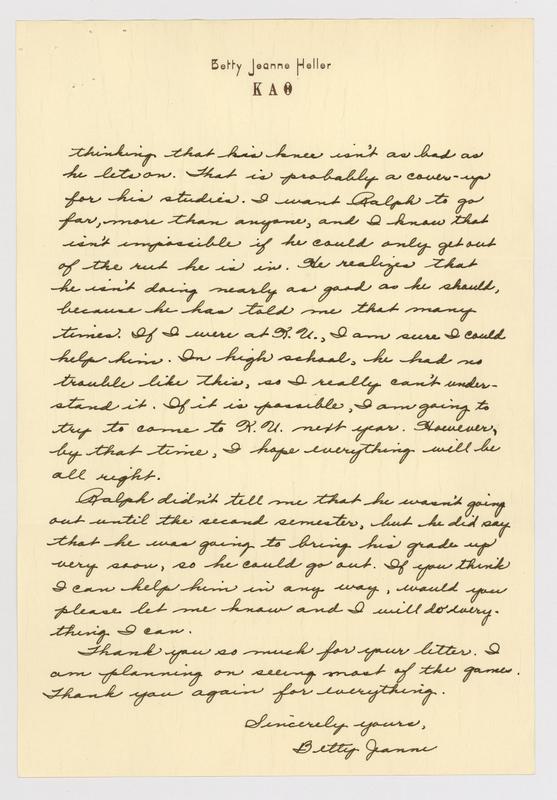 Betty Jeanne Heller
ΚΑΘ
thinking that his knee isn't as bad as
he lets on. That is probably a cover-up
for his studies. I want Ralph to go
far, more than anyone, and I know that
isn't impossible if he could only get out
of the rut he is in. He realizes that
he isn't doing nearly as good as he should,
because he has told me that many
times. If I were at K.U., I am sure I could
help him. In high school, he had no
trouble like this, so I really can't under-
stand it. If it is possible, I am going to
try to come to K.U. next year. However,
by that time, I hope everything will be
all right.
Ralph didn't tell me that he wasn't going
out until the second semester, but he did say
that he was going to bring his grade up
very soon, so he could go out. If you think
I can help him in any way, would you
please let me know and I will do every-
thing I can.
Thank you so much for your letter. I
am planning on seeing most of the games.
Thank you again for everything.
Sincerely yours,
Betty Jeanne